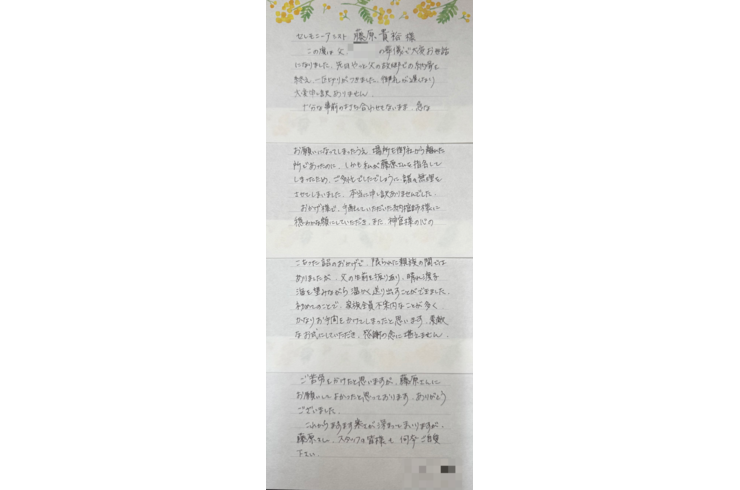 セレモニーアシスト 藤原貴裕 様
この度は父 の葬儀で大変お世話
になりました。先日やっと父の故郷での納骨も
終え、一区切りがつきました。御礼が遅くなり
大変申し訳ありません。
十分な事前の打ち合わせもないまま、急な
お願いになってしまったうえ、場所も御社から離れた
所であったのに、しかも私が藤原さんを指名して
しまったため、ご多忙でしたでしょうに、諸々無理を
させてしまいました。本当に申し訳ありませんでした。
おかげ様で、手配していただいた納棺師様に
穏やかなお顔にしていただき、また、神官様の心の
こもったお話のおかげで、限られた親族の間では
ありましたが、父の生前を振り返り、晴れた
海を望みながら温かく送り出すことができました。
初めてのことで、家族全員不案内なことが多く、
かなりお手間をかけてしまったと思います。素敵
なお式にしていただき、感謝の念に堪えません。
ご苦労をおかけしたと思いますが、藤原さんに
お願いしてよかったと思っております。ありがとう
ございました。
これからますます寒さが深まってまいりますが、
藤原さん、スタッフの皆様も何卒ご自愛
下さい